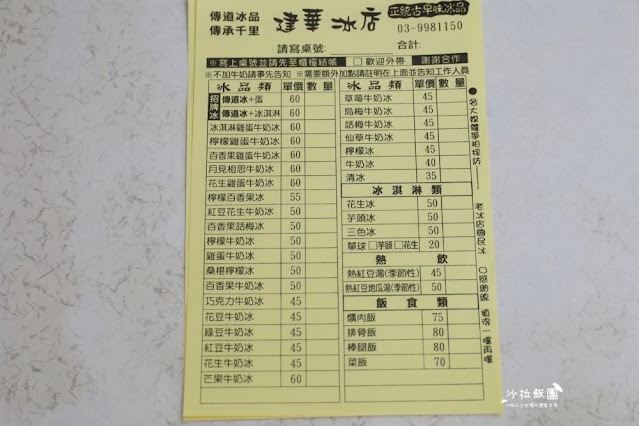 傳道冰品
傳承千里
建華冰店
正統古早味冰品
03-9981150
請寫桌號:
合計:
※寫上桌號並請先至櫃檯結帳 □歡迎外帶 謝謝合作
※不加牛奶請事先告知 ※需要額外加點請註明在上面並告知工作人員
冰品類 單價 數量
招牌冰
傳道冰+蛋 60
傳道冰+冰淇淋 60
冰淇淋雞蛋牛奶冰 60
檸檬雞蛋牛奶冰 60
百香果雞蛋牛奶冰 60
月見相思牛奶冰 60
花生雞蛋牛奶冰 60
檸檬百香果冰 55
紅豆花生牛奶冰 50
百香果話梅冰 50
檸檬牛奶冰 50
雞蛋牛奶冰 50
桑椹檸檬冰 50
百香果牛奶冰 50
巧克力牛奶冰 45
花豆牛奶冰 45
綠豆牛奶冰 45
紅豆牛奶冰 45
花生牛奶冰 45
芒果牛奶冰 60
冰品類 單價 數量
草莓牛奶冰 45
烏梅牛奶冰 45
話梅牛奶冰 45
仙草牛奶冰 45
檸檬冰 45
牛奶冰 40
清冰 35
冰淇淋類
花生冰 50
芋頭冰 50
三色冰 50
單球 □芋頭 □花生 20
熱飲
熱紅豆湯(季節性) 45
熱紅豆地瓜湯(季節性) 50
飯食類
爌肉飯 75
排骨飯 80
棒腿飯 80
菜飯 70
●各大媒體爭相採訪
老冰店國民冰
值得一嚐再嚐
沙拉飯團